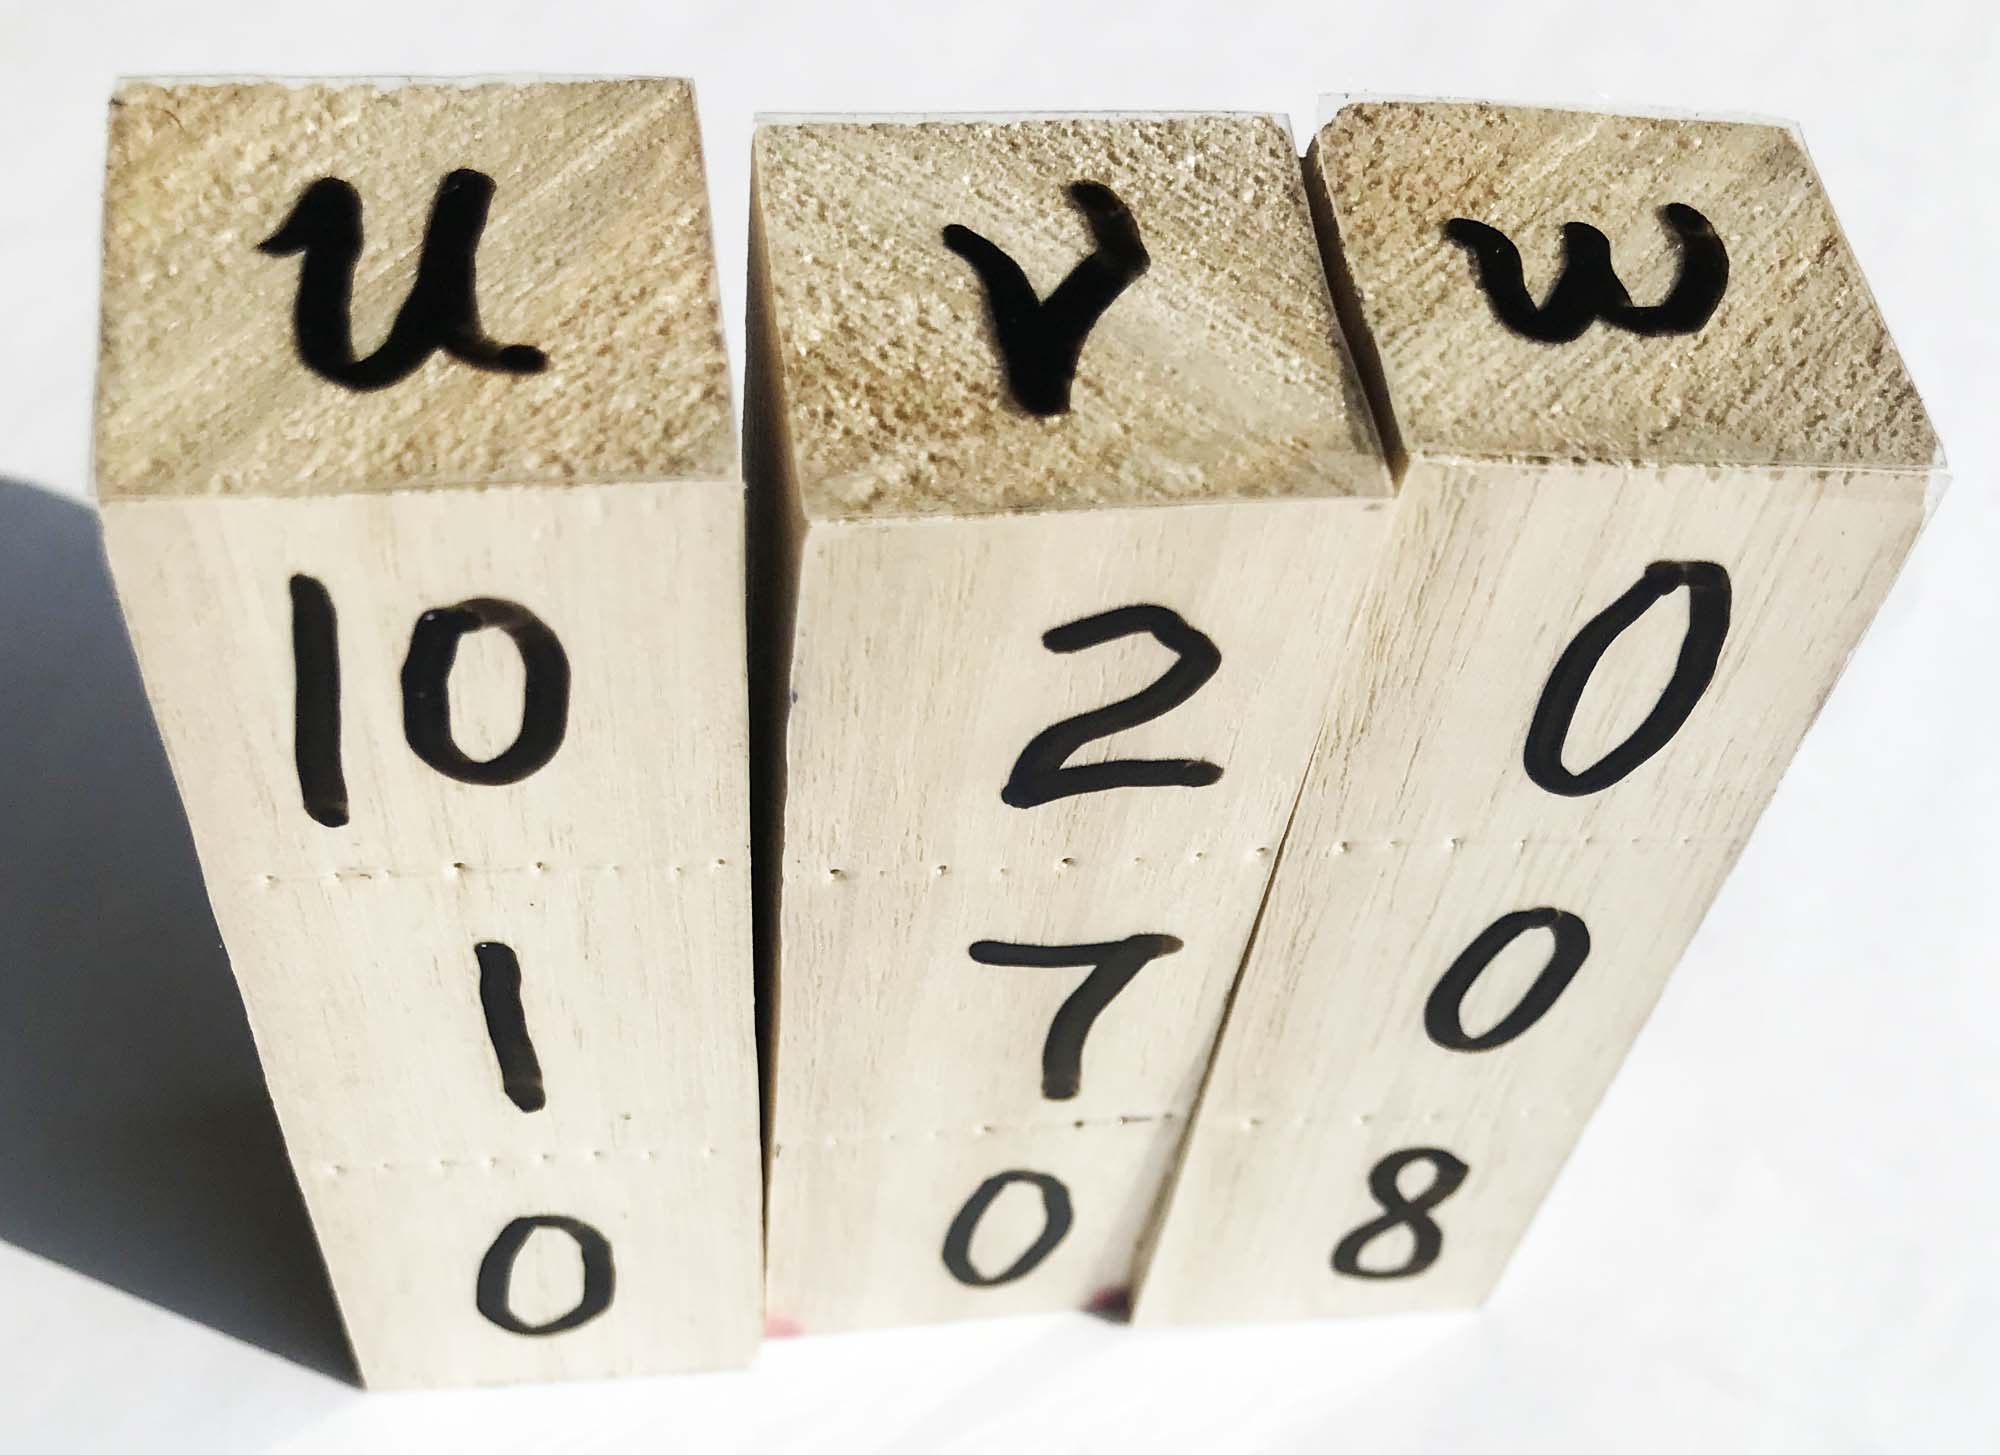 u v w
10 2 0
1 7 0
0 0 8